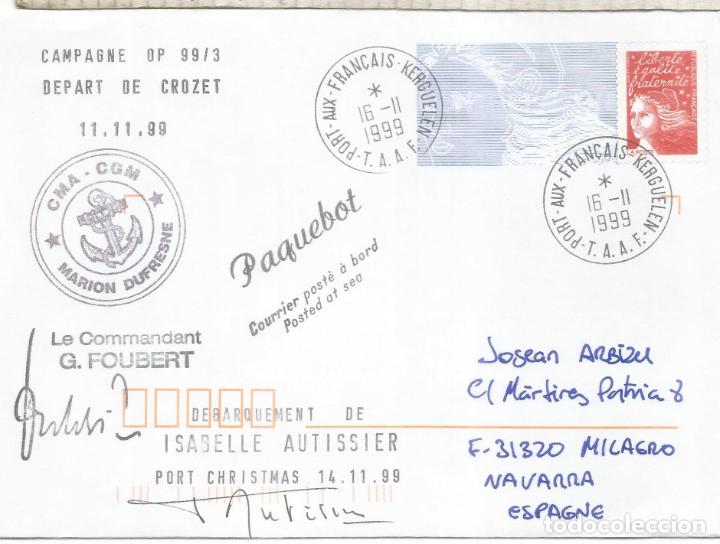 CAMPAGNE OP 99/3
DEPART DE CROZET
11.11.99
PORT-AUX-FRANÇAIS-KERGUELEN
*
16-11
1999
-T.A.A.F.-
liberté
égalité
fraternité
RÉPUBLIQUE FRANÇAISE
LA POSTE
PORT-AUX-FRANÇAIS-KERGUELEN
*
16-11
1999
-T.A.A.F.-
CMA-CGM
MARION DUFRESNE
Paquebot
Courrier posté à bord
Posted at sea
Le Commandant
G. FOUBERT
DEBARQUEMENT DE
ISABELLE AUTISSIER
PORT CHRISTMAS 14.11.99
Josean ARBIZU
C/ Mártires Patria 8
E-31320 MILAGRO
NAVARRA
ESPAGNE
todocoleccion.net